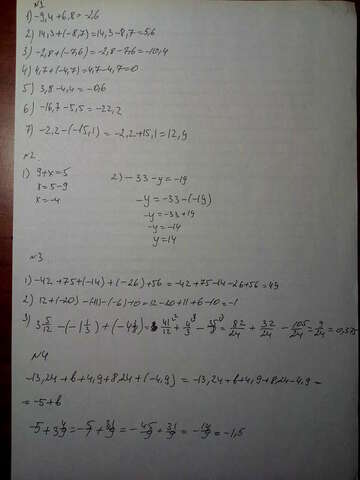 №1
1) -9,4+6,8=-2,6
2) 14,3+(-8,7)=14,3-8,7=5,6
3) -2,8+(-7,6)=-2,8-7,6=-10,4
4) 4,7+(-4,7)=4,7-4,7=0
5) 3,8-4,4=-0,6
6) -16,7-5,5=-22,2
7) -2,2-(-15,1)=-2,2+15,1=12,9
№2.
1) 9+x=5
x=5-9
x=-4
2) -33-y=-19
-y=-33-(-19)
-y=-33+19
-y=-14
y=14
№3
1) -42+75+(-14)+(-26)+56=-42+75-14-26+56=49
2) 12+(-20)-(-11)-(-6)-10=12-20+11+6-10=-1
3) 3 5/12-(-1 1/3)+(-4 3/8)= 41/12+4/3-35/8=82/24+32/24-105/24=9/24=0,375
№4
-13,24+b+4,9+8,24+(-4,9)=-13,24+b+4,9+8,24-4,9=
=-5+b
-5+3 4/9=-5+31/9=-45/9+31/9=-14/9=-1,5